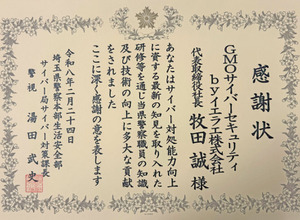 感謝状
GMOサイバーセキュリティ
byイエラエ株式会社
代表取締役社長 牧田 誠 様
あなたはサイバー対処能力向上
に資する最新の知見を取り入れた
研修等を通じ当県警察職員の知識
及び技術の向上に多大な貢献
をされました
ここに深く感謝の意を表します
令和八年二月二十四日
埼玉県警察本部生活安全部
サイバー局サイバー対策課長
警視 湯田 武史